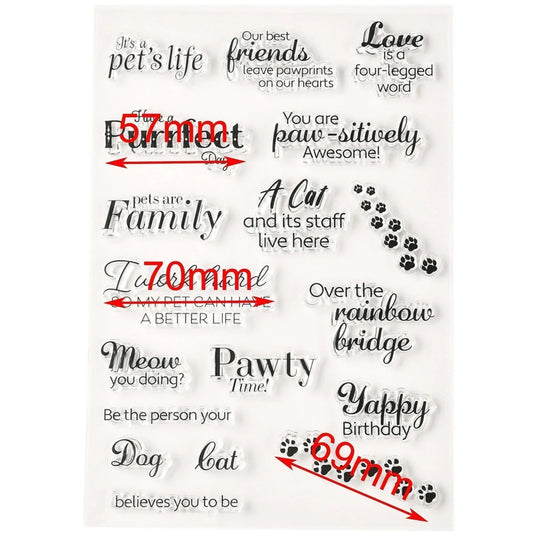 It's a
pet's life
Our best
friends
leave pawprints
on our hearts
Love
is a
four-legged
word
Have a
57mm
Purrfect
Day
You are
paw-sitively
Awesome!
pets are
Family
A Cat
and its staff
live here
I work hard
70mm
SO MY PET CAN HAVE
A BETTER LIFE
Over the
rainbow
bridge
Meow
you doing?
Pawty
Time!
Yappy
Birthday
Be the person your
Dog Cat
believes you to be
69mm